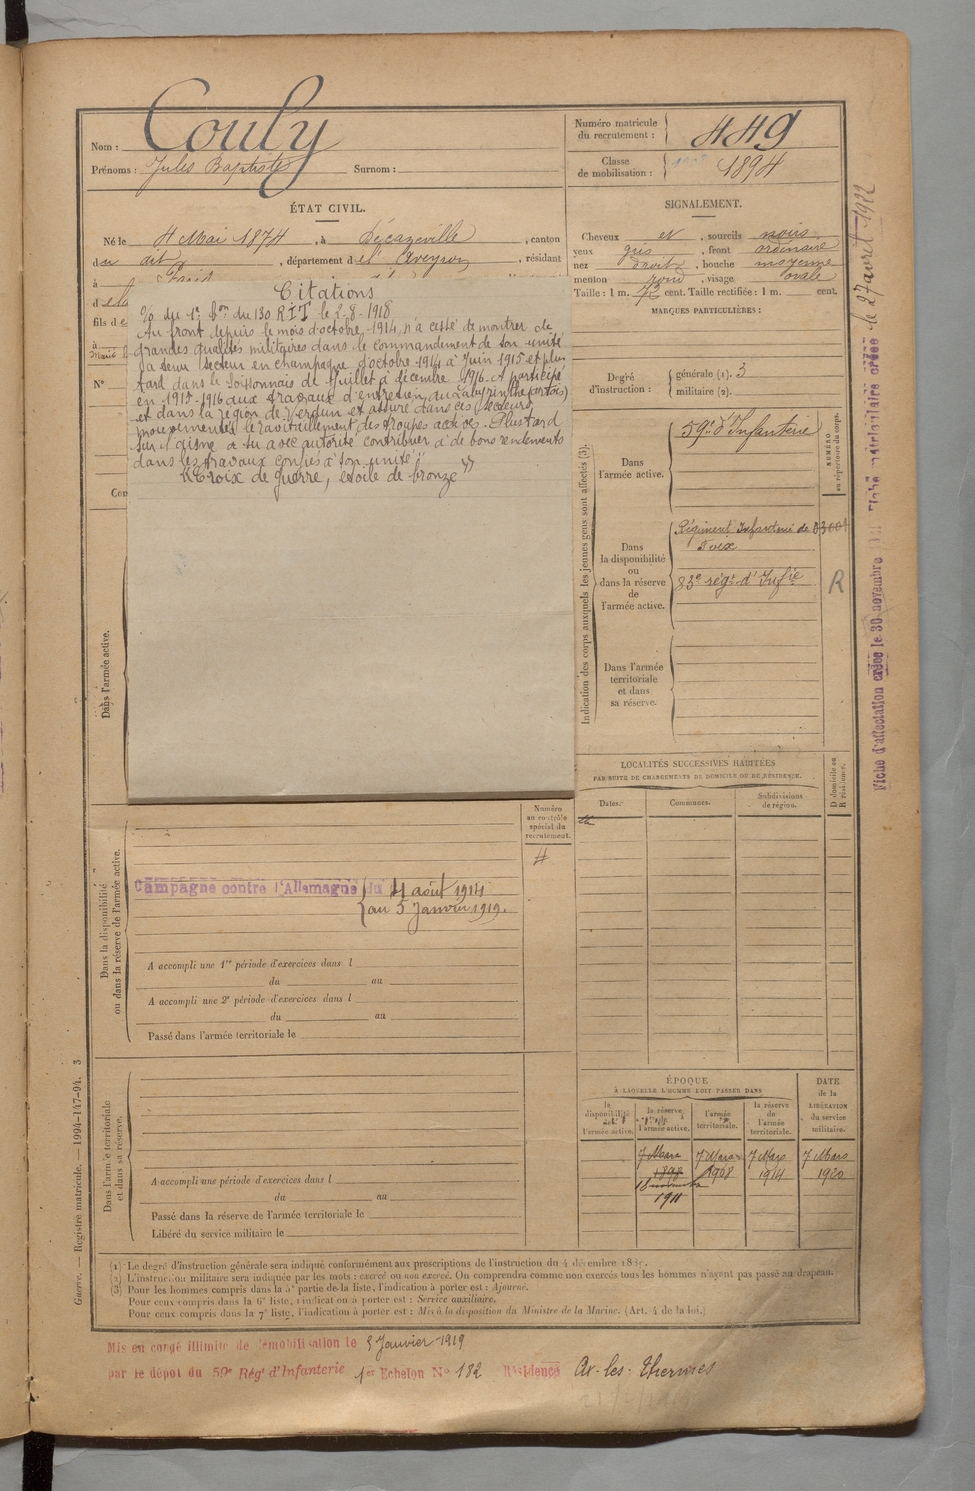 Nom : Couly
Prénoms : Jules Baptiste Surnom :
Numéro matricule du recrutement : 449
Classe de mobilisation : 1894
ÉTAT CIVIL.
Né le 4 Mai 1874, à Décazeville, canton
du dit, département de l'Aveyron, résidant
à
d
fils d
à
N°
SIGNALEMENT.
Cheveux et, sourcils noirs
yeux gris, front ordinaire
nez droit, bouche moyenne
menton rond, visage ovale
Taille : 1 m. 72 cent. Taille rectifiée : 1 m. cent.
MARQUES PARTICULIÈRES :
Degré d'instruction : générale (1). 3
militaire (2).
Citations
du 130 RIT le 2-8-1918
Au front depuis le mois d'octobre 1914, n'a cessé de montrer de
grandes qualités militaires dans le commandement de son unité
secteur en champagne d'octobre 1914 à Juin 1915 et plus
tard dans le Soissonnais de Juillet à décembre 1916. A participé
en 1915-1916 aux travaux d'entretien du Labyrinthe (Artois)
et dans la région de Verdun et assuré dans ces secteurs
mouvementés le ravitaillement des troupes actives. Plus tard
sur l'Aisne a su avec autorité contribuer à de bons rendements
dans les travaux confiés à son unité"
Croix de guerre, étoile de bronze
Indication des corps auxquels les jeunes gens sont affectés (3).
NUMÉRO au répertoire du corps.
Dans l'armée active.
59e d'Infanterie
Dans la disponibilité ou dans la réserve de l'armée active.
Régiment Infanterie de
Foix
83e régt d'Infie
R
Dans l'armée territoriale et dans sa réserve.
Fiche matriculaire créée le 27 avril 1922
Fiche d'affectation créée le 30 novembre
Dans l'armée active.
LOCALITÉS SUCCESSIVES HABITÉES
PAR SUITE DE CHANGEMENTS DE DOMICILE OU DE RÉSIDENCE.
Dates. Communes. Subdivisions de région. D domicile ou R résidence.
Numéro au contrôle spécial du recrutement.
4
Dans la disponibilité ou dans la réserve de l'armée active.
Campagne contre l'Allemagne du 4 août 1914
au 5 Janvier 1919.
A accompli une 1re période d'exercices dans l
du au
A accompli une 2e période d'exercices dans l
du au
Passé dans l'armée territoriale le
Dans l'armée territoriale et dans sa réserve.
A accompli une période d'exercices dans l
du au
Passé dans la réserve de l'armée territoriale le
Libéré du service militaire le
ÉPOQUE
À LAQUELLE L'HOMME DOIT PASSER DANS
DATE de la LIBÉRATION du service militaire.
la disponibilité de l'armée active. la réserve de l'armée active. l'armée territoriale. la réserve de l'armée territoriale.
7 Mars 7 Mars 7 Mars 7 Mars
1898 1908 1914 1920
1911
Guerre. — Registre matricule. — 1994-147-94. 3
(1) Le degré d'instruction générale sera indiqué conformément aux prescriptions de l'instruction du 4 décembre
(2) L'instruction militaire sera indiquée par les mots : exercé ou non exercé. On comprendra comme non exercés tous les hommes n'ayant pas passé au drapeau.
(3) Pour les hommes compris dans la 5e partie de la liste, l'indication à porter est : Ajourné.
Pour ceux compris dans la 6e liste, l'indication à porter est : Service auxiliaire.
Pour ceux compris dans la 7e liste, l'indication à porter est : Mis à la disposition du Ministre de la Marine. (Art. 4 de la loi.)
Mis en congé illimité de démobilisation le 5 Janvier 1919
par le dépôt du 59e Régt d'Infanterie 1er Echelon N° 182 Résidence Ax-les-Thermes